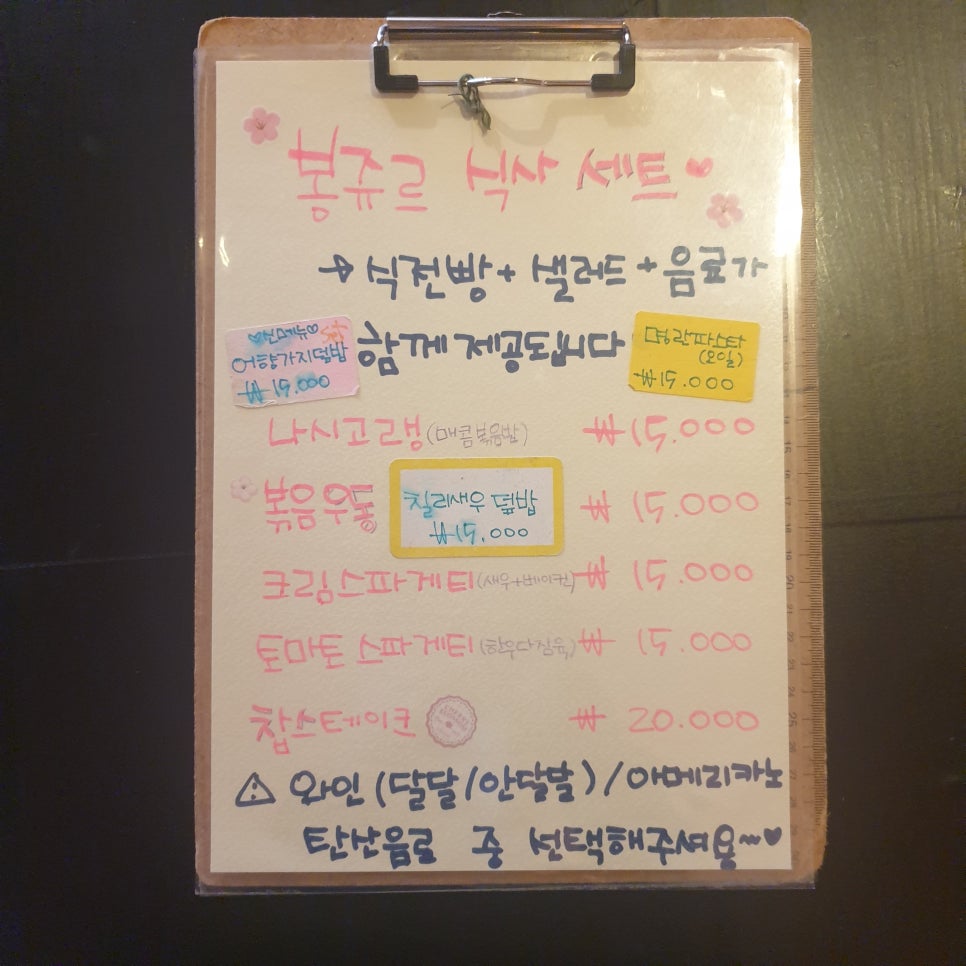 봉쥬르 식사 세트
→ 식전빵 + 샐러드 + 음료가
함께 제공됩니다
신메뉴
어향가지덮밥
₩15.000
명란파스타
(오일)
₩15.000
나시고랭 (매콤볶음밥) ₩15.000
볶음우동 ₩15.000
칠리새우 덮밥
₩15.000
크림스파게티 (새우+베이컨) ₩15.000
토마토 스파게티 (한우다짐육) ₩15.000
찹스테이크 ₩20.000
⚠ 와인 (달달/안달발) / 아메리카노
탄산음료 중 선택해주세용~